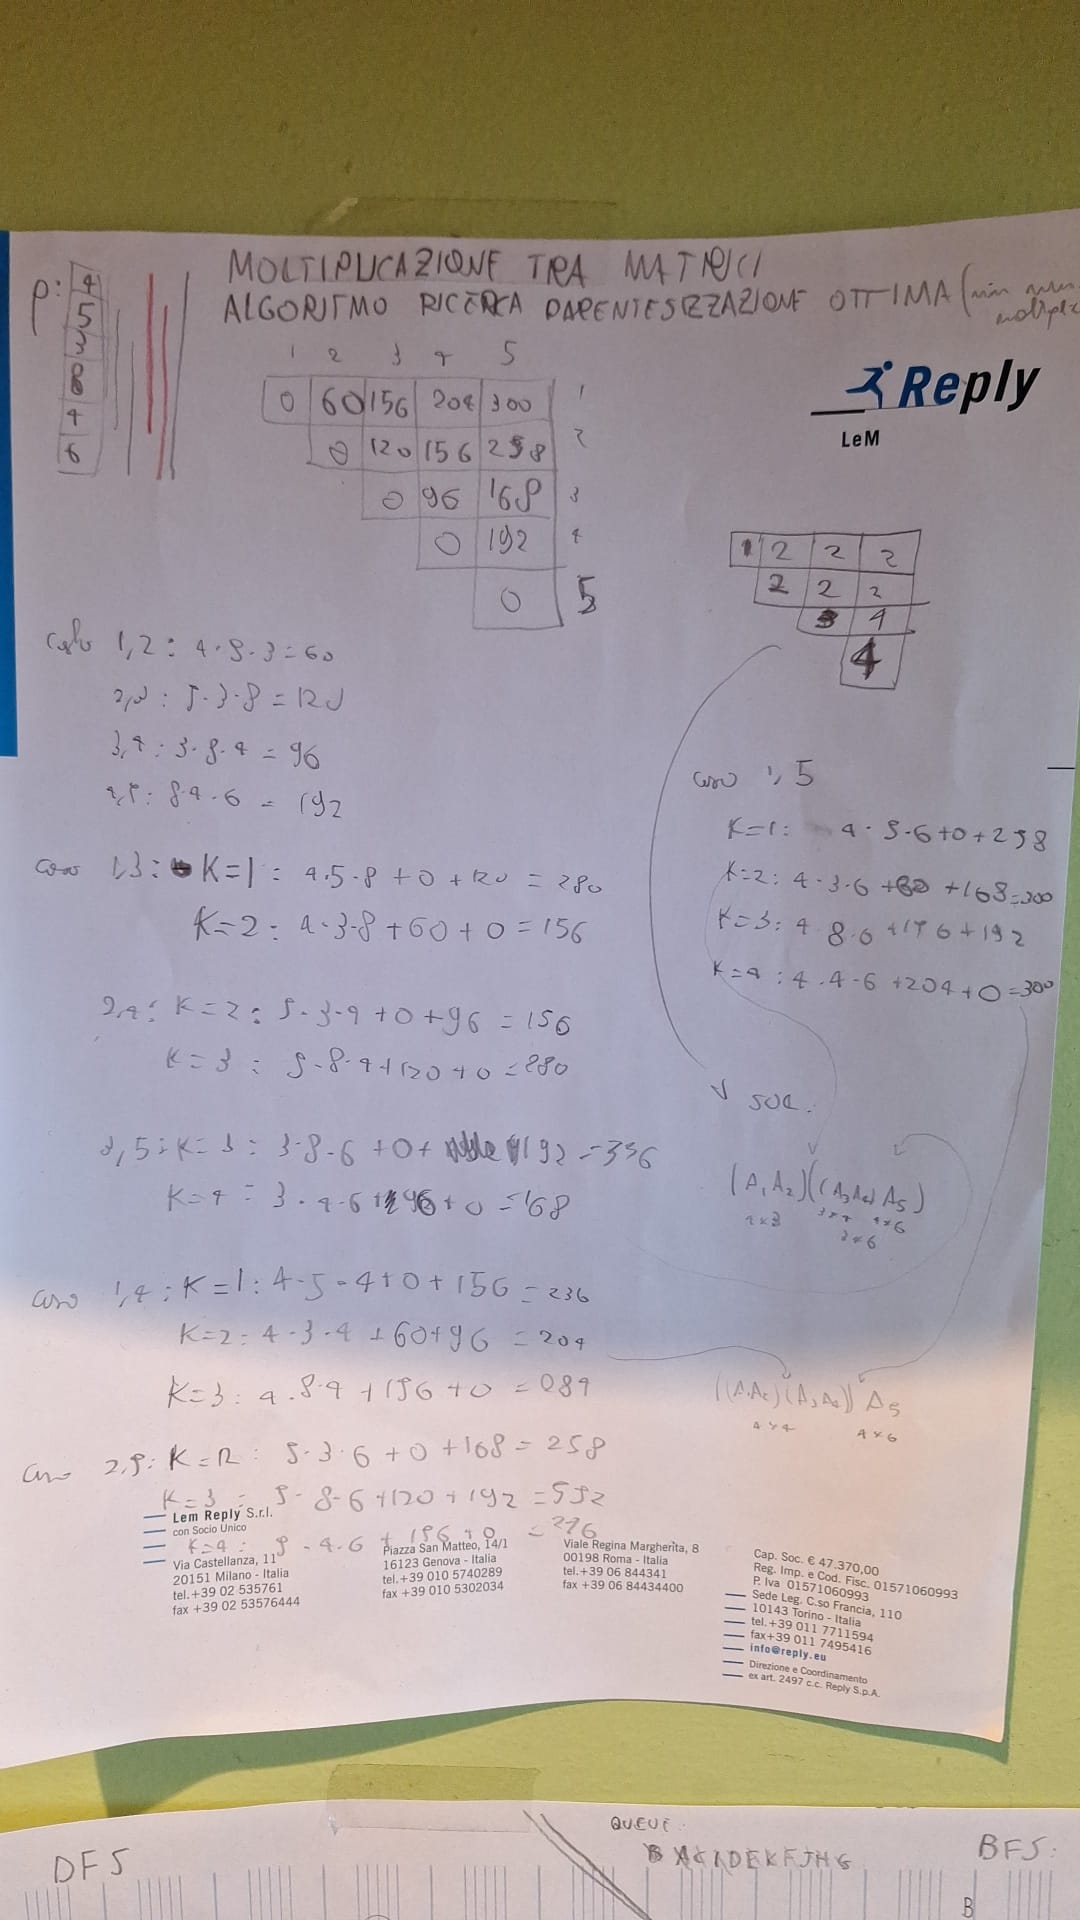 MOLTIPLICAZIONE TRA MATRICI
ALGORITMO RICERCA PARENTESIZZAZIONE OTTIMA (min num
moltiplic
p: 4
5
3
8
4
6
1 2 3 4 5
0 60 156 204 300 1
0 120 156 258 2
0 96 168 3
0 192 4
0 5
Reply
LeM
1 2 2 2
2 2 2
3 4
4
1,2: 4·5·3=60
2,3: 5·3·8=120
3,4: 3·8·4=96
4,5: 8·4·6=192
caso 1,3: K=1: 4·5·8+0+120=280
K=2: 4·3·8+60+0=156
2,4: K=2: 5·3·4+0+96=156
K=3: 5·8·4+120+0=280
3,5: K=3: 3·8·6+0+192=336
K=4: 3·4·6+96+0=168
caso 1,4: K=1: 4·5·4+0+156=236
K=2: 4·3·4+60+96=204
K=3: 4·8·4+156+0=284
caso 2,5: K=2: 5·3·6+0+168=258
K=3: 5·8·6+120+192=552
K=4: 5·4·6+156+0=276
caso 1,5
K=1: 4·5·6+0+258
K=2: 4·3·6+60+168=300
K=3: 4·8·6+156+192
K=4: 4·4·6+204+0=300
SOL:
(A1A2)((A3A4)A5)
4x3 3x4 4x6
3x6
((A1A2)(A3A4))A5
4x4 4x6
Lem Reply S.r.l.
con Socio Unico
Via Castellanza, 11
20151 Milano - Italia
tel.+39 02 535761
fax +39 02 53576444
Piazza San Matteo, 14/1
16123 Genova - Italia
tel.+39 010 5740289
fax +39 010 5302034
Viale Regina Margherita, 8
00198 Roma - Italia
tel.+39 06 844341
fax +39 06 84434400
Cap. Soc. € 47.370,00
Reg. Imp. e Cod. Fisc. 01571060993
P. Iva 01571060993
Sede Leg. C.so Francia, 110
10143 Torino - Italia
tel.+39 011 7711594
fax+39 011 7495416
info@reply.eu
Direzione e Coordinamento
ex art. 2497 c.c. Reply S.p.A.
DFS
QUEUE:
BFS:
B